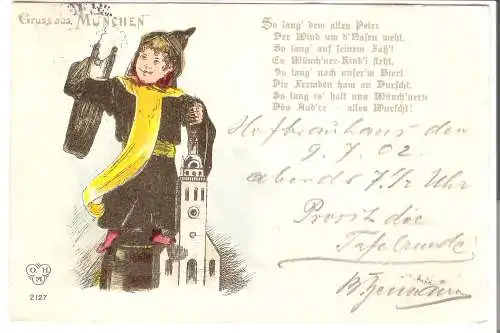 Gruss aus MÜNCHEN
So lang' dem alten Peter
Der Wind um d'Nasen weht,
So lang' auf seinem Faß'l
Es Münch'ner-Kind'l steht,
So lang' nach unser'm Bier'l
Die Fremden ham an Durscht,
So lang is' halt uns Münch'nern
Dös And're – alles Wurscht!
Hofbräuhaus den
9. 7. 02
abends 7 ½ Uhr
Prosit die
Tafelrunde!
O H M
2127